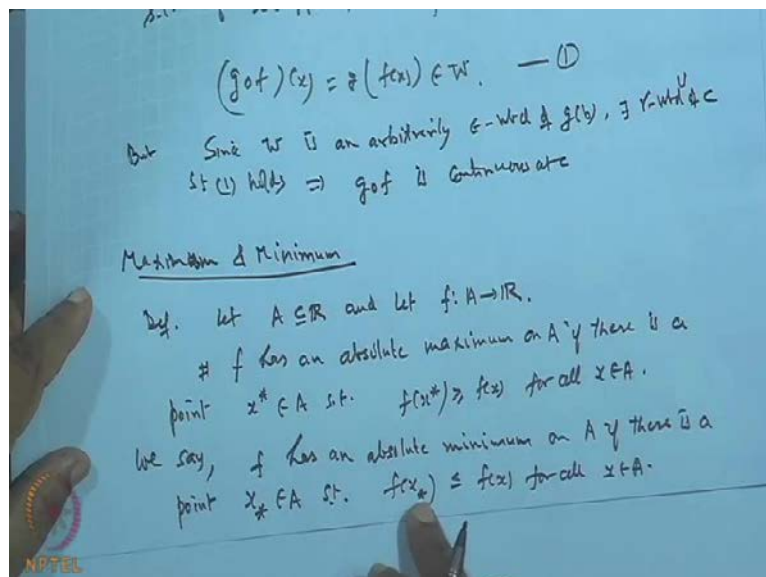 (gof)(x) = g(f(x)) ∈ W. — ①
But Since W is an arbitrarily ε-nbd of g(b), ∃ γ-nbd U of c
st (1) holds ⇒ gof is continuous at c
Maximum & Minimum
Def. Let A ⊆ ℝ and let f: A→ℝ.
f has an absolute maximum on A if there is a
point x* ∈ A s.t. f(x*) ≥ f(x) for all x ∈ A.
We say, f has an absolute minimum on A if there is a
point x_* ∈ A s.t. f(x_*) ≤ f(x) for all x ∈ A.
NPTEL